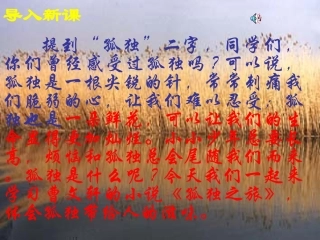 导入新课
提到“孤独”二字，同学们，
你们曾经感受过孤独吗？可以说，
孤独是一根尖锐的针，常常刺痛我
们脆弱的心，让我们难以忍受，孤
独也是一朵鲜花，可以让我们的生
小小少年总要长
高，烦恼和孤独总会尾随我们而来
孤独是什么呢？今天我们一起来
学习曹文轩的小说《孤独之旅》，
体会孤独带给人的滋味。